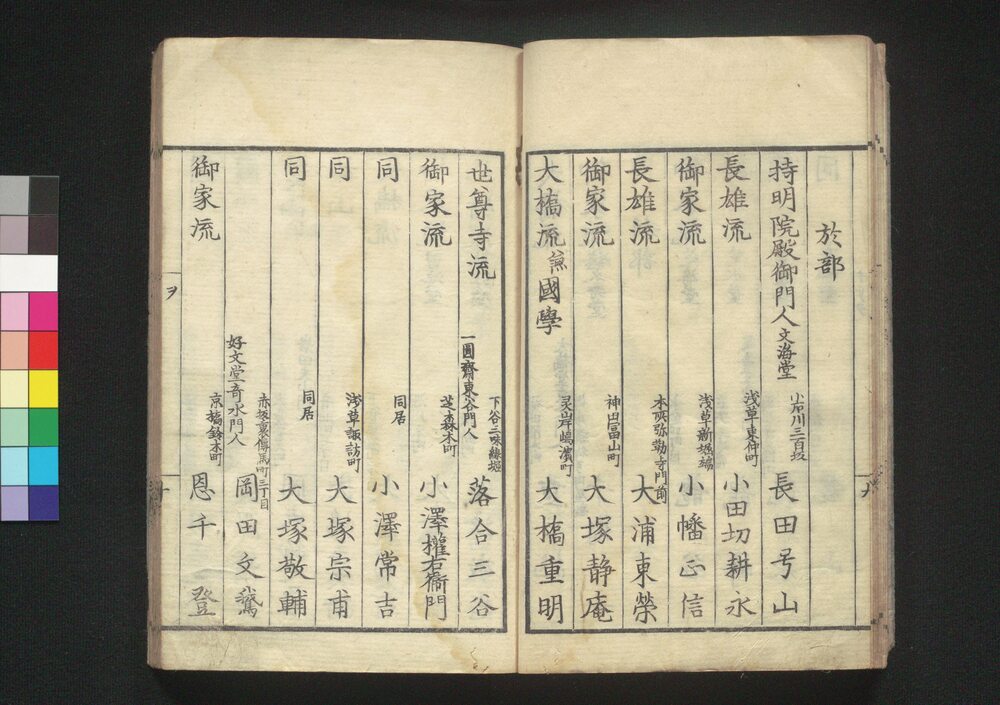 於部
持明院殿御門人 文海堂 小石川三百坂 長田号山
長雄流 浅草東仲町 小田切耕永
御家流 浅草新堀端 小幡正信
長雄流 本所弥勒寺門前 大浦東榮
御家流 神田冨山町 大塚静庵
大橋流 兼國學 灵岸嶋濱町 大橋重明
世尊寺流 一圓齋東谷門人 下谷三味線堀 落合三谷
御家流 芝森本町 小澤權右衞門
同 同居 小澤常吉
同 浅草諏訪町 大塚宗甫
同 同居 大塚敬輔
好文堂奇水門人 赤坂裏傳馬町三丁目 岡田文鵞
御家流 京橋鈴木町 恩千登
ヲ
十
九